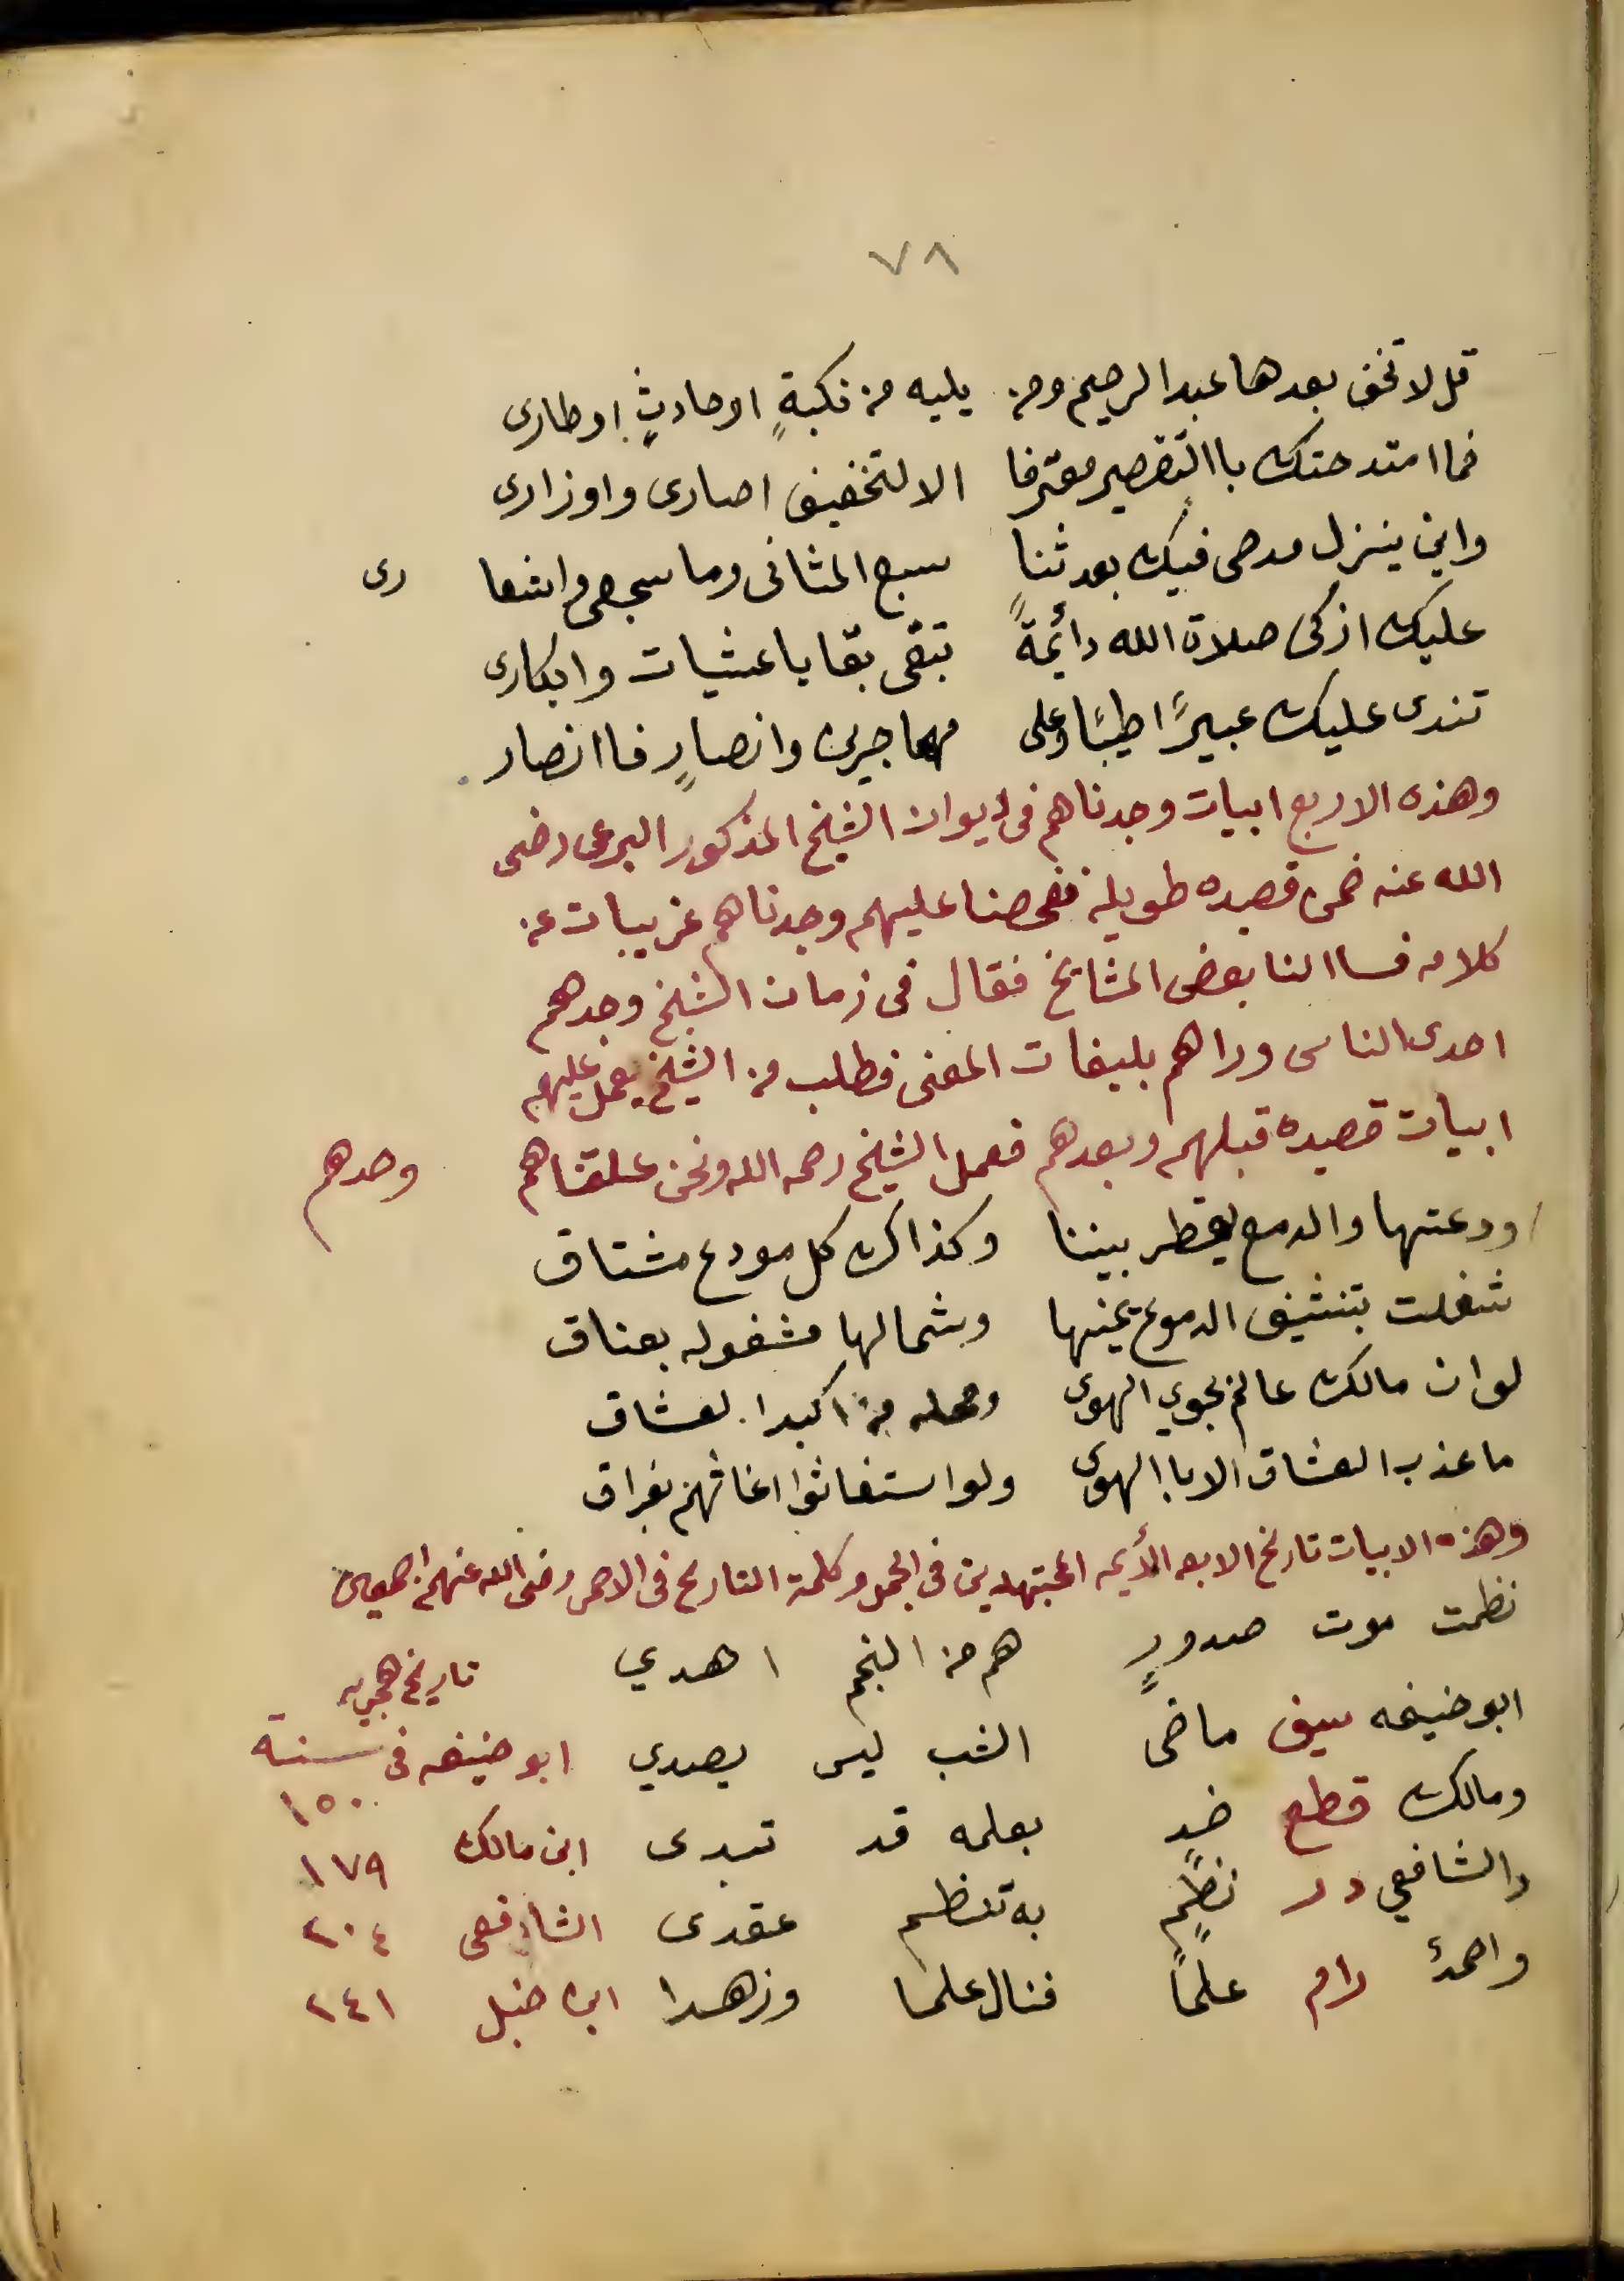 ٧٨
قل لا تخف بعدها عبد الرحيم ومن يليه من نكبةٍ او حادثٍ او طارى
فما امتدحتك باالتقصير معترفا الا لتخفيف اصارى واوزارى
واين ينزل مدحى فيك بعد ثنا سبع المثانى وما سجعى واشعا رى
عليك ازكى صلاة الله دائمةً تبقى بقا يا عشيات وابكارى
تندى عليك عبيرًا طيبًا وعلى مهاجرين وانصارٍ فاانصار
وهذه الاربع ابيات وجدناهم فى ديوان الشيخ المذكور البرعى رضى
الله عنه ضمن قصيده طويله ففحصنا عليهم وجدناهم غريبات عن
كلامه فساالنا بعض المشايخ فقال فى زمان الشيخ وجدهم
احدى الناس وراهم بليغات المعنى فطلب من الشيخ يعمل عليهم
ابيات قصيده قبلهم وبعدهم فعمل الشيخ رحمه الله ونحن علقناهم وحدهم
ودعتها والدمع يقطر بيننا وكذاك كل مودع مشتاق
شغلت بتنشيف الدموع يمينها وشمالها مشغوله بعناق
لو ان مالك عالم بجوي الهوى ومحله من اكبدا لعشاق
ما عذب العشاق الا باالهوى ولو استغاثوا اغاثهم بفراق
وهذه الابيات تاريخ الابعه الأيمه المجتهدين فى الجمل وكلمة التاريخ فى الاحمر رضى الله عنهم اجمعين
نظمت موت صدورٍ هم من النجم اهدي تاريخ هجريه
ابو حنيفه سيف ماضى الشب ليس يصدي ابو حنيفه فى سنة ١٥٠
ومالك قطع ضدٍ بعلمه قد تبدى ابن مالك ١٧٩
والشافعي در نظمٍ به تنظم عقدى الشافعى ٢٠٤
واحمدٌ رام علمًا فنال علما وزهدا ابن حنبل ٢٤١